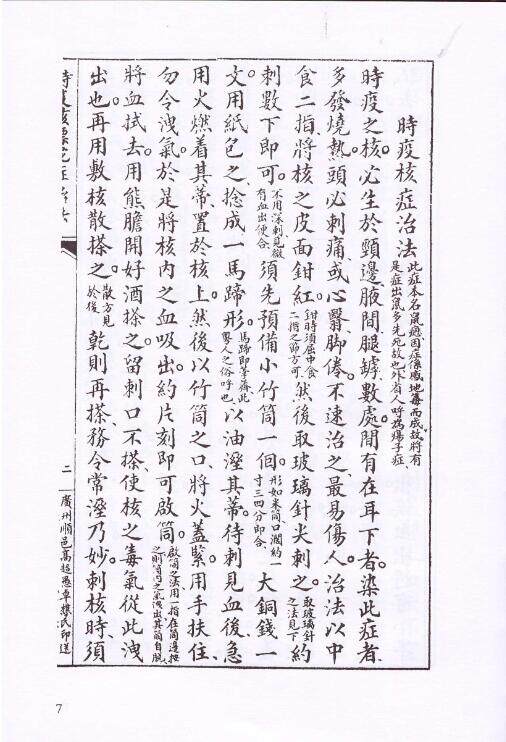 時疫核症治法此症本名鼠疫因症係感地毒而成故將有
是症出鼠多先死故也外省人呼為癢子症
時疫之核必生於頸邊腋間腿罅數處間有在耳下者染此症者
多發燒熱頭必刺痛或心翳脚倦不速治之最易傷人治法以中
食二指將核之皮面鉗紅鉗時須屈中食二指之節方可然後取玻璃針尖刺之取玻璃針之法見下約
刺數下即可不用深刺見微有血出便合須先預備小竹筒一個形如米筒口濶約寸三四分即合大銅錢一
文用紙包之捻成一馬蹄形馬蹄即荸薺此粵人之俗呼也以油溼其蒂待刺見血後急
用火燃着其蒂置於核上然後以竹筒之口將火蓋緊用手扶住
勿令洩氣於是將核内之血吸出約片刻即可啟筒啟筒之法用一指在筒邊按之則筒内之氣洩出其筒自脫
將血拭去用熊膽開好酒搽之留刺口不搽使核之毒氣從此洩
出也再用敷核散搽之散方見於後乾則再搽務令常溼乃妙刺核時須
時疫核標蛇症治法
二
廣州順邑高超憑卓樑氏印送
7